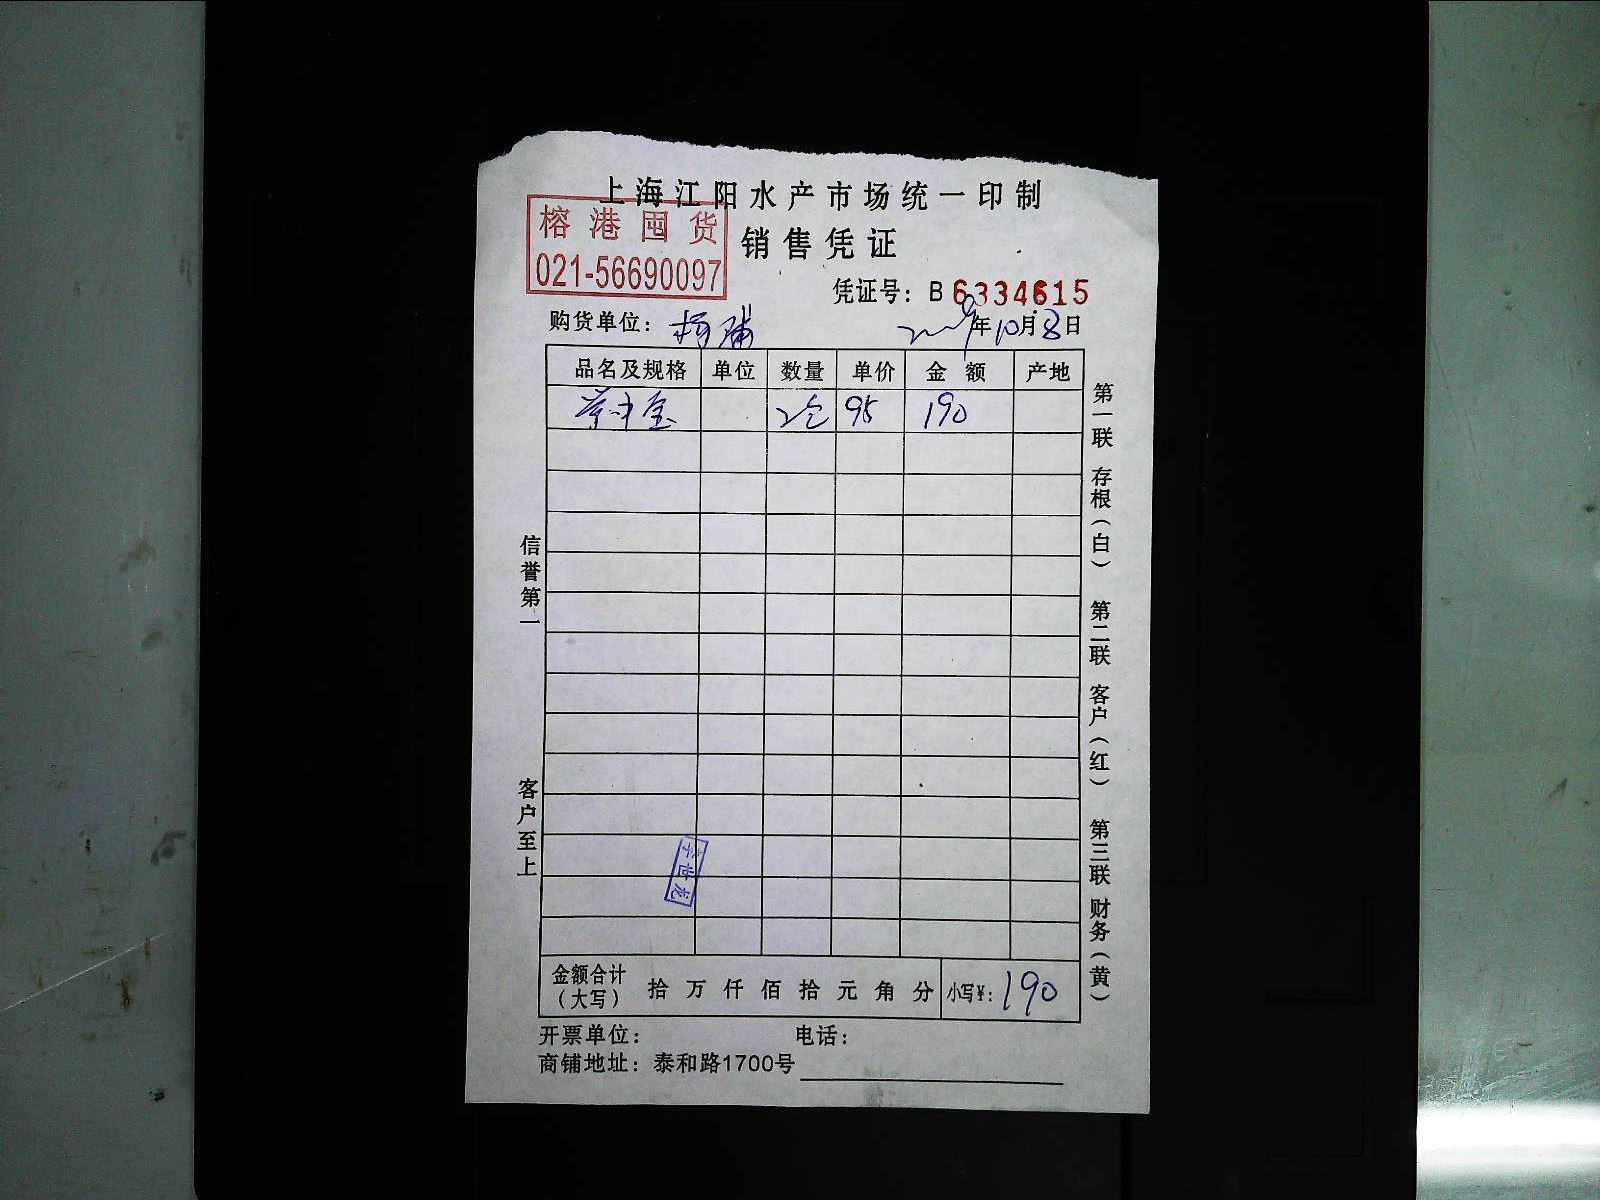 上海江阳水产市场统一印制
榕港囤货
021-56690097
销售凭证
凭证号：B 6334615
购货单位：
年10月8日
品名及规格 单位 数量 单价 金额 产地
95 190
信誉第一
客户至上
第一联 存根（白） 第二联 客户（红） 第三联 财务（黄）
世龙
金额合计（大写） 拾 万 仟 佰 拾 元 角 分 小写¥：190
开票单位： 电话：
商铺地址：泰和路1700号